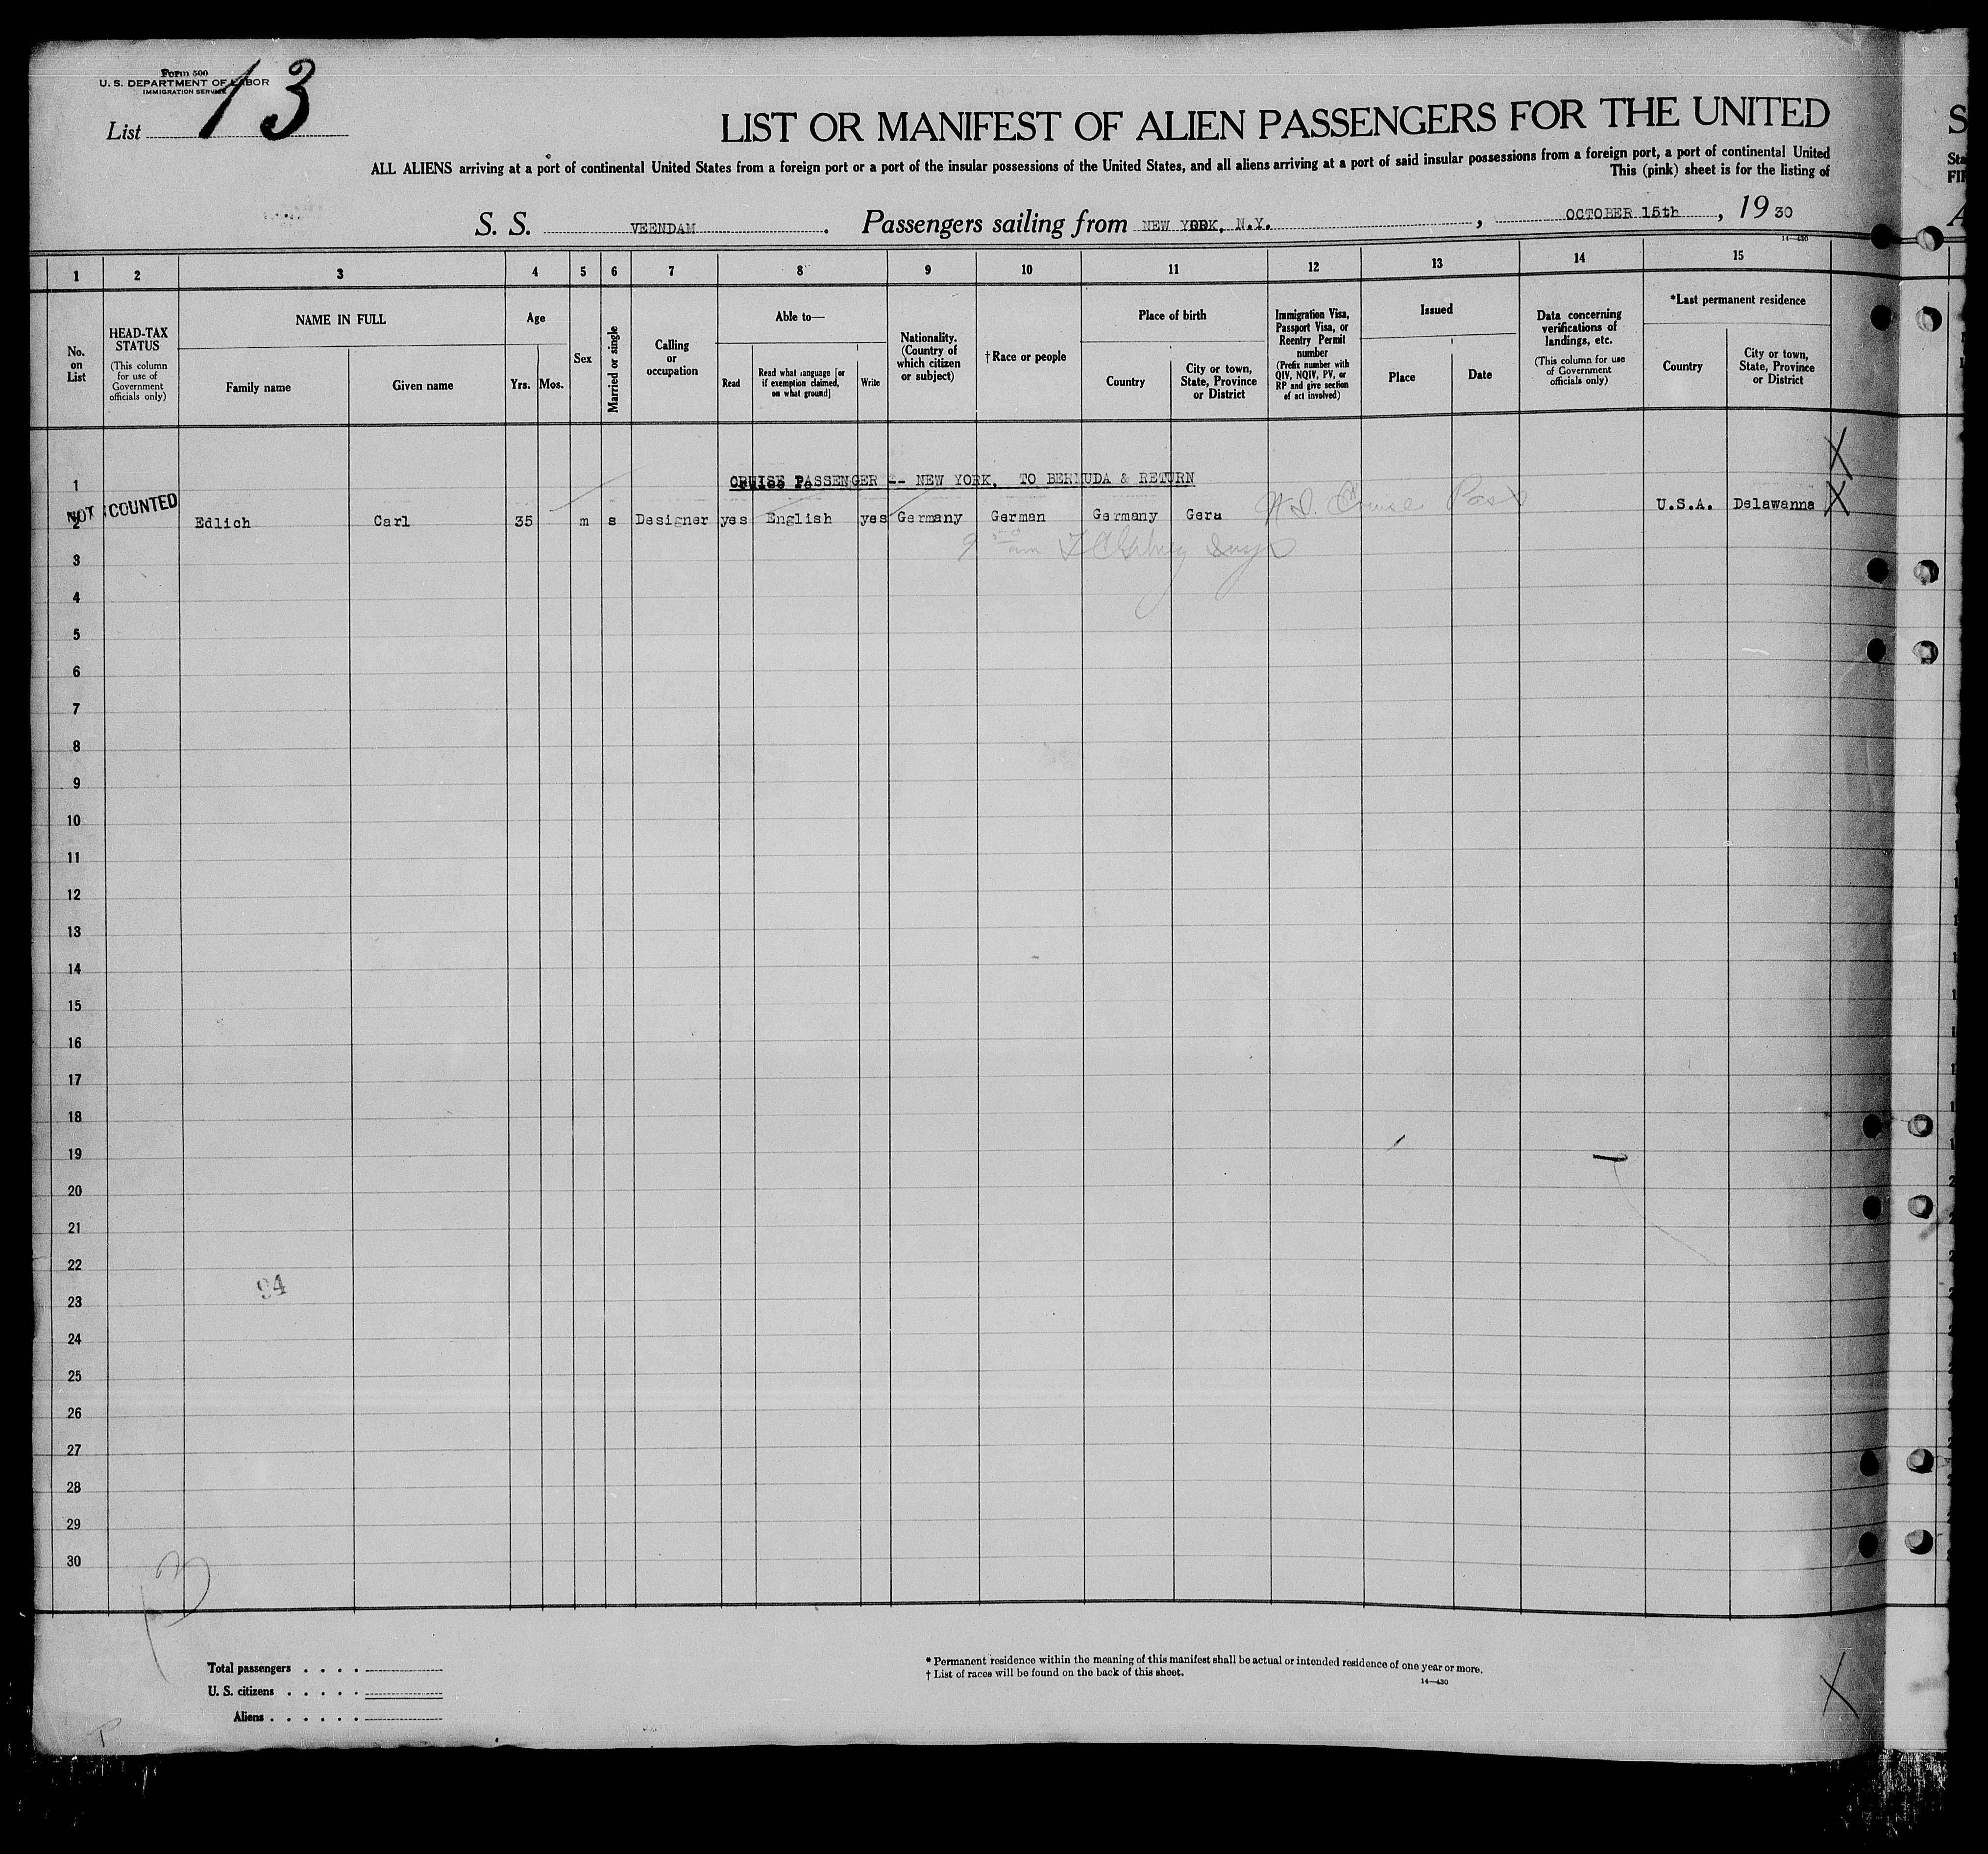 Form 500
U. S. DEPARTMENT OF LABOR
IMMIGRATION SERVICE
List 13
LIST OR MANIFEST OF ALIEN PASSENGERS FOR THE UNITED
ALL ALIENS arriving at a port of continental United States from a foreign port or a port of the insular possessions of the United States, and all aliens arriving at a port of said insular possessions from a foreign port, a port of continental United
This (pink) sheet is for the listing of
S. S. VEENDAM. Passengers sailing from NEW YORK, N.Y., OCTOBER 15th, 1930
14—430
1 2 3 4 5 6 7 8 9 10 11 12 13 14 15
No. on List
HEAD-TAX STATUS
(This column for use of Government officials only)
NAME IN FULL
Family name
Given name
Age
Yrs. Mos.
Sex
Married or single
Calling or occupation
Able to—
Read
Read what language [or if exemption claimed, on what ground]
Write
Nationality. (Country of which citizen or subject)
†Race or people
Place of birth
Country
City or town, State, Province or District
Immigration Visa, Passport Visa, or Reentry Permit number
(Prefix number with QIV, NQIV, PV, or RP and give section of act involved)
Issued
Place
Date
Data concerning verifications of landings, etc.
(This column for use of Government officials only)
*Last permanent residence
Country
City or town, State, Province or District
1 CRUISE PASSENGER -- NEW YORK, TO BERMUDA & RETURN X
NOT COUNTED
2 Edlich Carl 35 m s Designer yes English yes Germany German Germany Gera Cruise Pass U.S.A. Delawanna X
3
4
5
6
7
8
9
10
11
12
13
14
15
16
17
18
19
20
21
22
94
23
24
25
26
27
28
29
30
Total passengers . . . .
U. S. citizens . . . . .
Aliens . . . . . .
* Permanent residence within the meaning of this manifest shall be actual or intended residence of one year or more.
† List of races will be found on the back of this sheet.
14—430
X